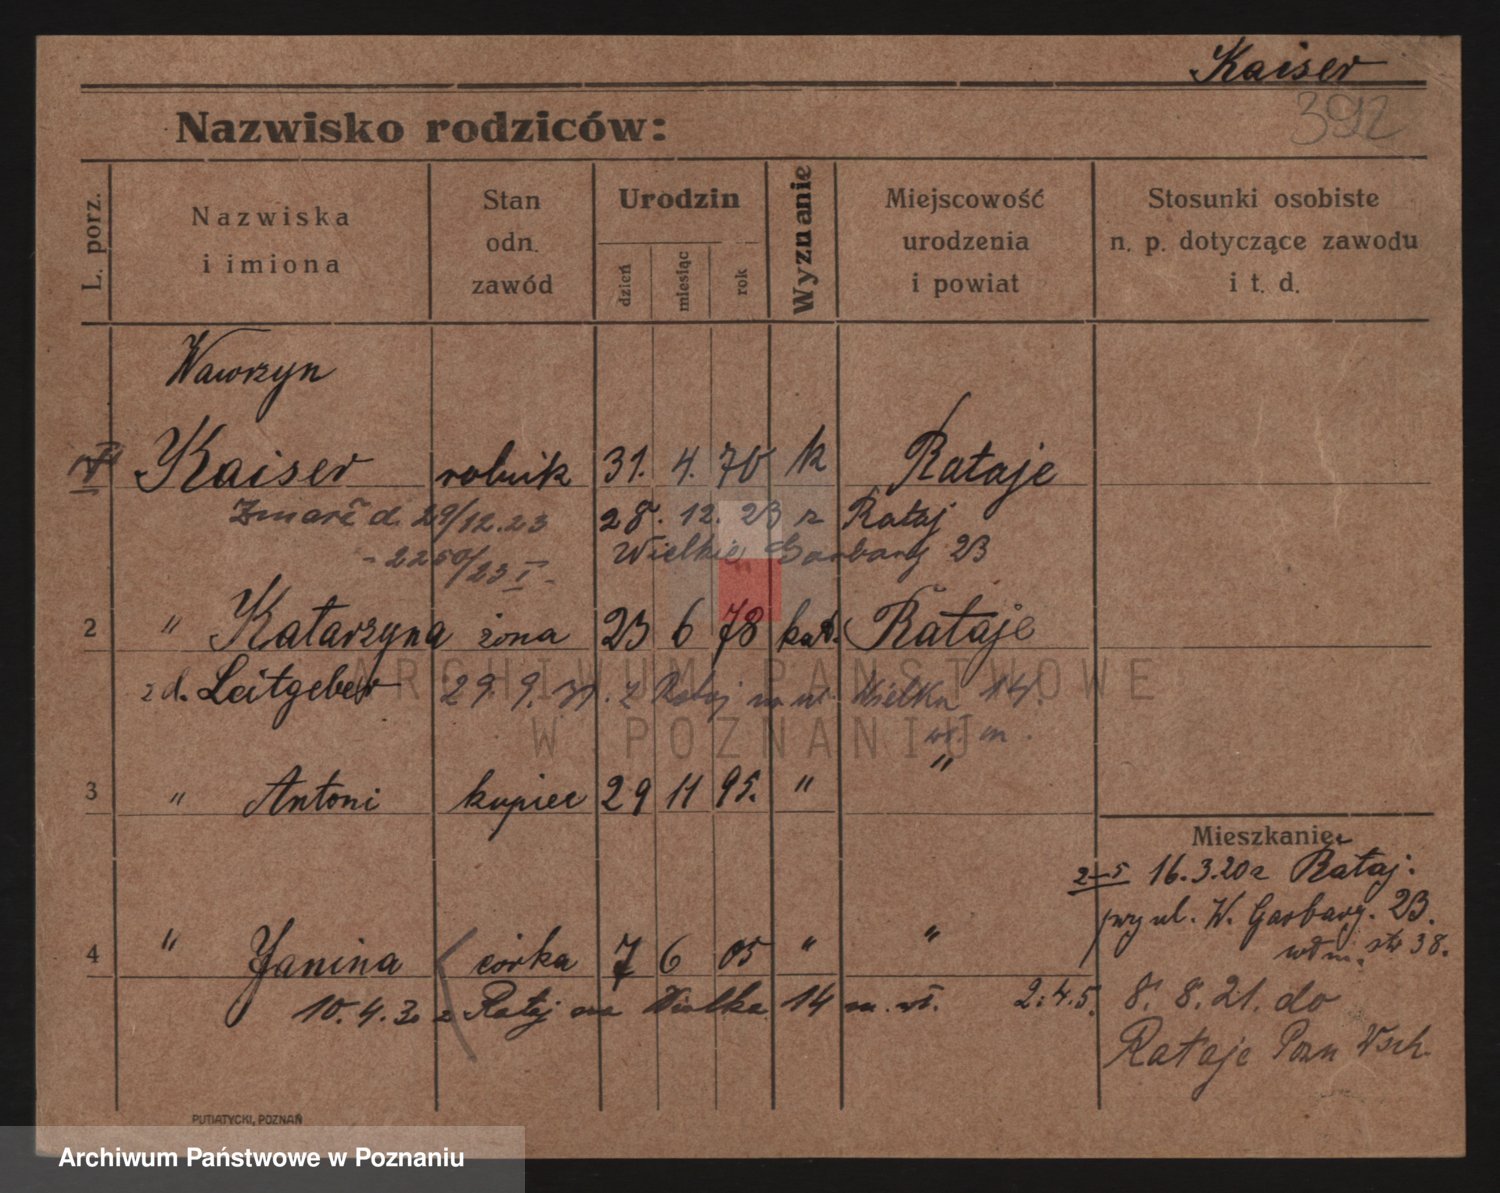 Kaiser
392
Nazwisko rodziców:
L. porz.
Nazwiska
i imiona
Stan
odn.
zawód
Urodzin
dzień
miesiąc
rok
Wyznanie
Miejscowość
urodzenia
i powiat
Stosunki osobiste
n. p. dotyczące zawodu
i t. d.
Wawrzyn
Kaiser rolnik 31. 4. 70 k Rataje
Zmarł d. 29/12.23 28. 12. 23 z Rataj
- 2250/23 I - Wielkie Garbary 23
2 " Katarzyna żona 23 6 78 kat. Rataje
z d. Leitgeber 29. 9. 31. z Rataj na ul. Wielka 14.
wł. m.
3 " Antoni kupiec 29 11 95. " "
Mieszkanie
2-5 16.3.20 z Rataj.
przy ul. W. Garbary. 23.
wł m. str 38.
4 " Janina córka 7 6 05 " "
10. 4. 30 z Rataj na Wielka 14 m. wł.
2.4.5. 8. 8. 21. do
Rataje Pozn Wsch.
PUTIATYCKI, POZNAŃ
ARCHIWUM PAŃSTWOWE
W POZNANIU
Archiwum Państwowe w Poznaniu